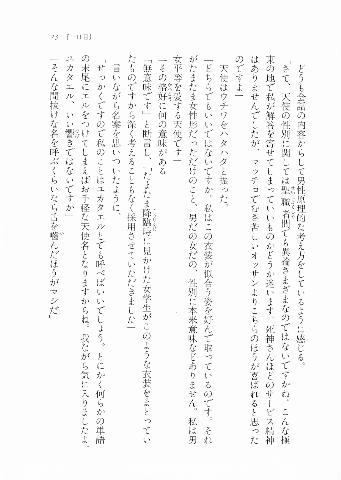 23 『一日目』
どうも会話の内容からして男性原理的な考え方をしているように感じる。
「さて、天使の性別に関しては聖職者間でも異論さまざまなのではないですかね。こんな極
東の地で私が解答を寄せてしまっていいものかどうか迷います。死神さんほどのサービス精神
はありませんでしたが、マッチョでむさ苦しいオッサンよりこちらのほうが喜ばれると思った
のですよ」
天使はウチワをハタハタと振った。
「どちらでもいいではないですか。私はこの衣装が似合う姿を好んで取っているのです。それ
がたまたま女性形だっただけのこと。男だの女だの、性別に本来意味などありません。私は男
女平等を愛する天使です」
「その格好に何の意味がある」
「無意味です」と断言し、「たまたま降臨時に見かけた女学生がこのような衣装をまとってい
たものですから深く考えることもなく採用させていただきました」
言いながら名案を思いついたように、
「せっかくですので私のことはユカタエルとでも呼べばいいでしょう。とにかく何らかの単語
の末尾にエルをつけてしまえばお手軽な天使名となりますからね。我ながら気に入りましたよ、
ユカタエル、いい響きではないですか」
「そんな間抜けな名を呼ぶくらいなら舌を噛んだほうがマシだ」